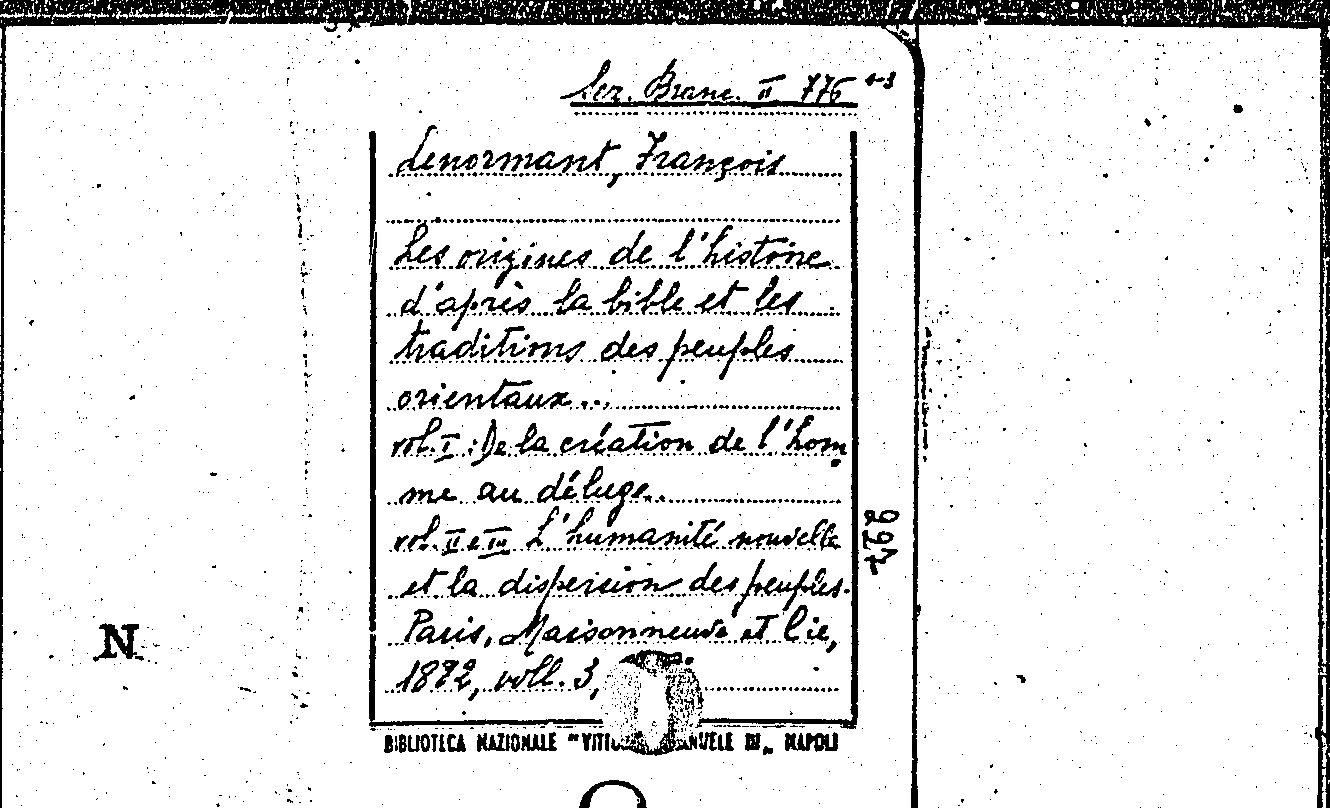 Ser. Branc. II 776 1-3
Lenormant, François
Les origines de l'histoire
d'après la bible et les
traditions des peuples
orientaux...
vol. I: De la création de l'hom
me au déluge.
vol. II e III L'humanité nouvelle
et la dispersion des peuples.
Paris, Maisonneuve et Cie,
1882, voll. 3,
BIBLIOTECA NAZIONALE "VITT ANUELE III„ NAPOLI
N